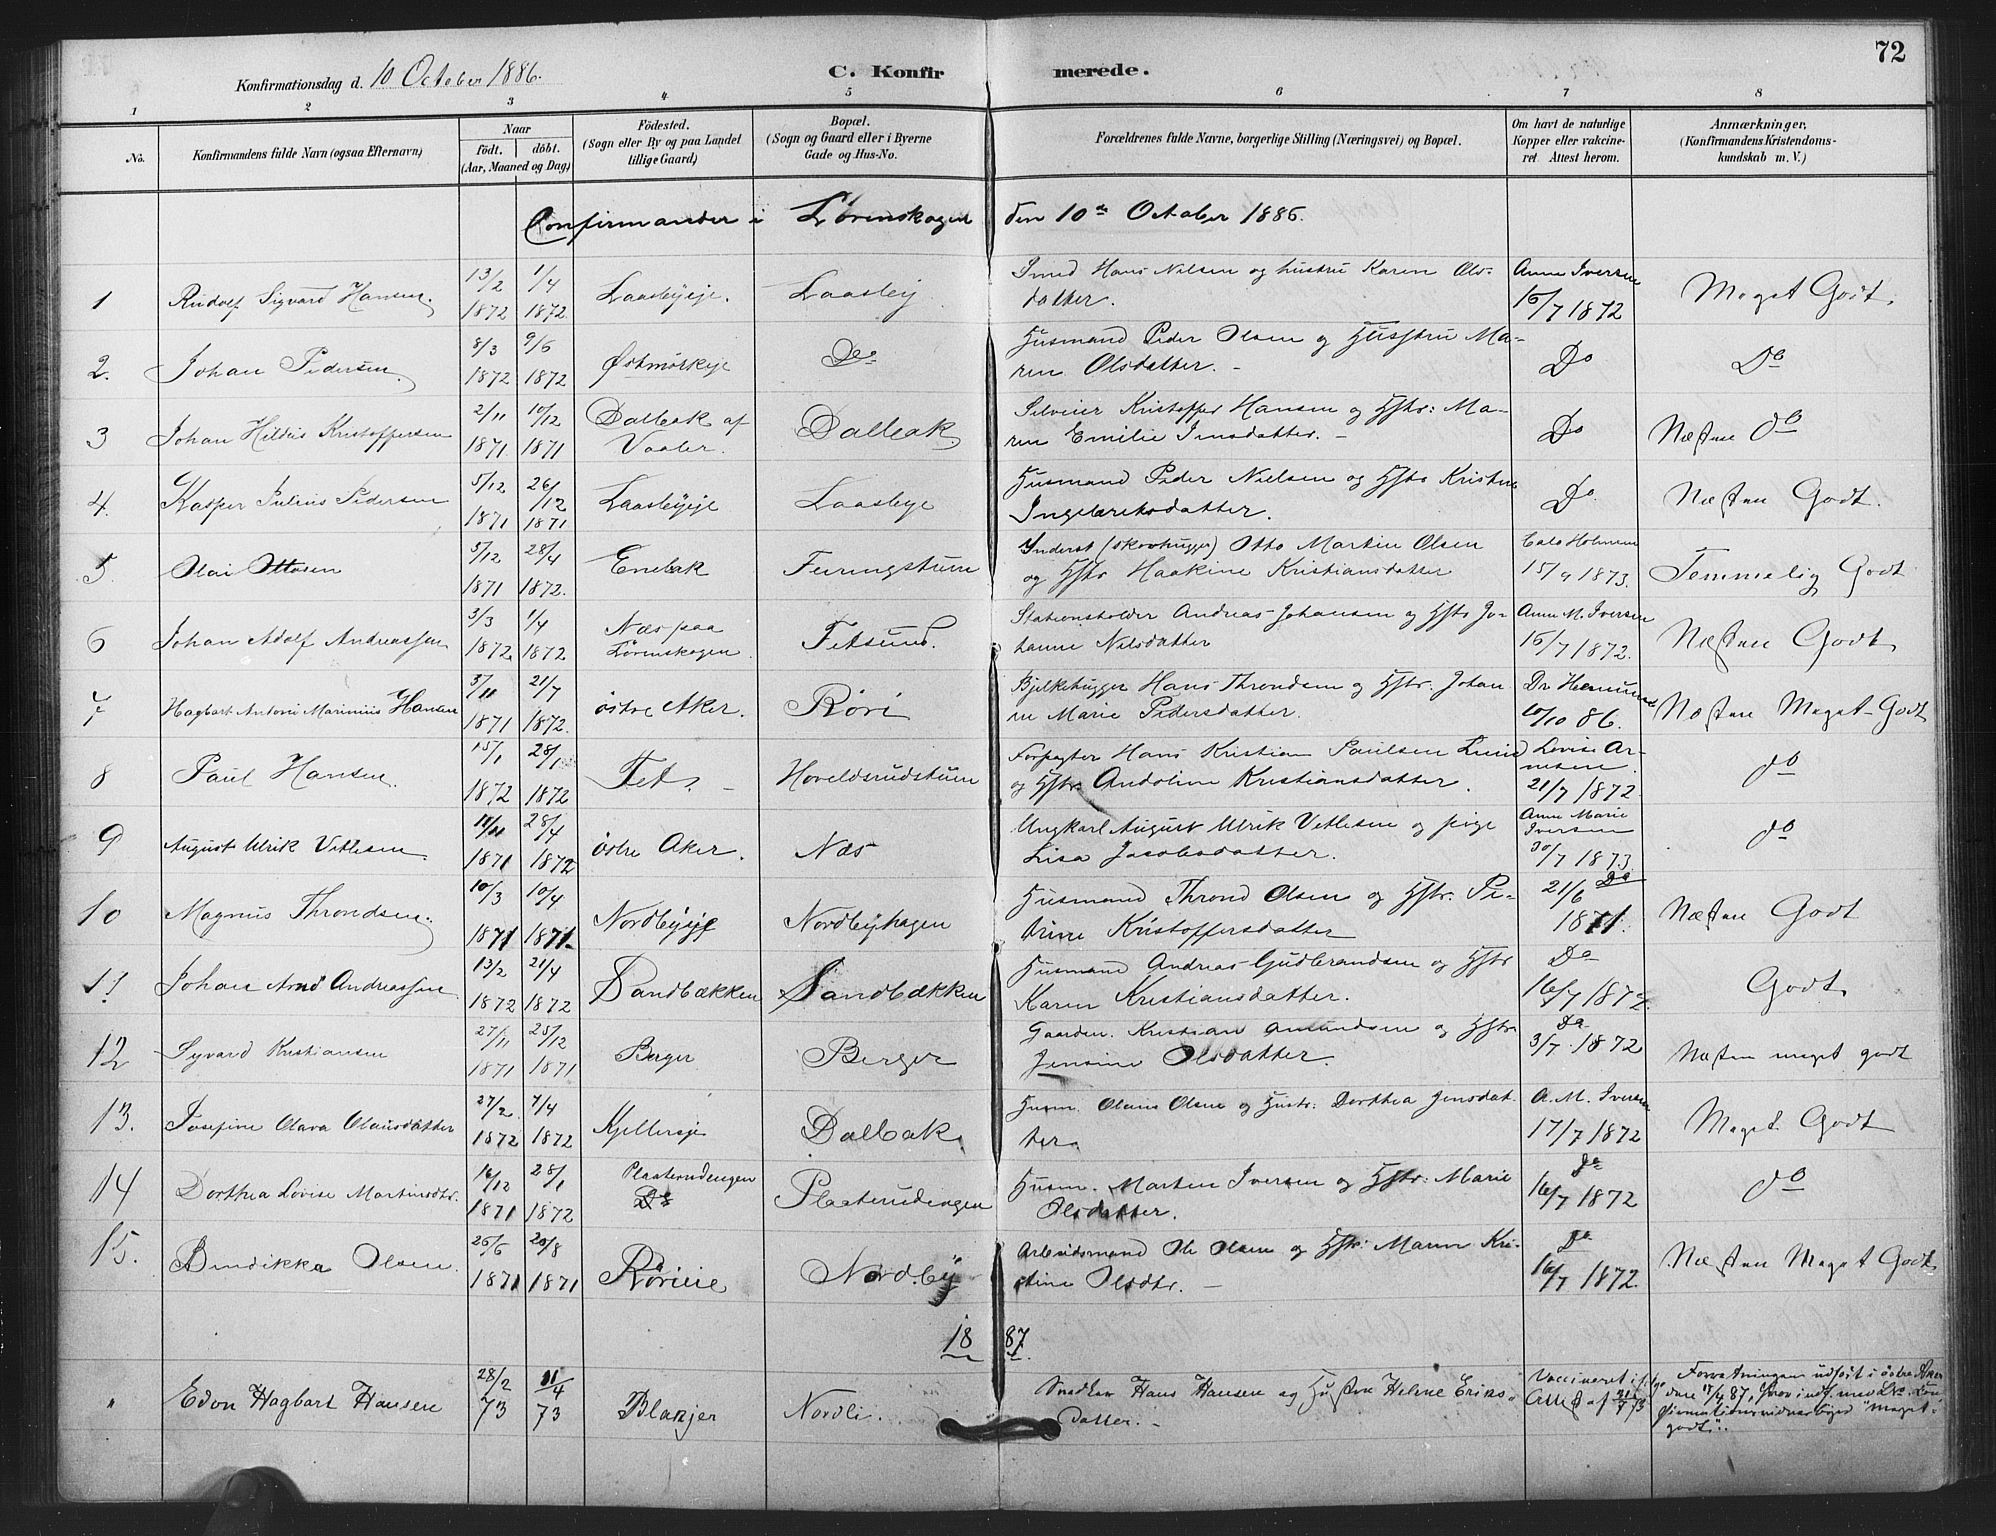 72
Konfirmationsdag d. 10 October 1886.
C. Konfirmerede.
1 2 3 4 5 6 7 8
No.
Konfirmandens fulde Navn (ogsaa Efternavn)
Naar
født. døbt.
(Aar, Maaned og Dag)
Fødested.
(Sogn eller By og paa Landet
tillige Gaard)
Bopæl.
(Sogn og Gaard eller i Byerne
Gade og Hus-No.
Forældrenes fulde Navne, borgerlige Stilling (Næringsvei) og Bopæl.
Om havt de naturlige
Kopper eller vakcine-
ret. Attest herom.
Anmærkninger.
(Konfirmandens Kristendoms-
kundskab m. V.)
Confirmander i Lørenskogen den 10de October 1886.
1 Rudolf Sigvard Hansen. 13/2 1872 1/4 1872. Laasbyeje. Laasby Smed Hans Nilsen og hustru Karen Ols-
datter. Anne Iversen 16/7 1872 Meget Godt.
2. Johan Pedersen. 8/3 1872 9/6 1872 Østmørkeje Do Husmand Peder Olsen og Hustru Ma-
ren Olsdatter. - Do Do
3 Johan Hildus Kristoffersen 2/11 1871. 10/12 1871 Dalbak af
Vaaler. Dalbak. Kristoffer Hansen og Hstr: Ma-
ren Emilie Jensdatter. - Do Næsten do
4. Kasper Julius Pedersen 5/12 1871 26/12 1871 Laasbyeje Laasbye Husmand Peder Nielsen og Hstr Kristine
Ingebretsdatter. Do Næsten Godt.
5. Olai Ottosen 5/12 1871 28/4 1872. Enebak Inderst (skovhugger) Otto Martin Olsen
og Hstr Haakine Kristiansdatter 15/9 1873. Temmelig Godt
6 Johan Adolf Andreassen 3/3 1872. 1/4 1872 Næs paa
Lørenskogen Fetsund. Stationsholder Andreas Johansen og Hstr Jo-
hanne Nilsdatter Anne M. Iversen 16/7 1872. Næsten Godt
7 Hagbart Antoni Marinius Hansen 3/11 1871 21/7 1872. østre Aker. Røri Bjelkehugger Hans Throndsen og Hstr. Johan
ne Marie Pedersdatter. 10/10 86. Næsten Meget Godt
8 Paul Hansen. 15/1 1872 28/1 1872 Fet. - Hoveldsrudstuen Forpagter Hans Kristian Paulsen Lund
og Hstr. Andoline Kristiansdatter. Lovise Ar-
ntsen. 21/7 1872. do
9 August Ulrik Vetlesen. 11/11 1871 28/4 1872 østre Aker. Næs Ungkarl August Ulrik Vetlesen og pige
Lisa Jacobsdatter. Anne Marie
Iversen 30/7 1873 do
10 Magnus Throndsen. 10/3 1871 10/4 1871. Nordbyeje Nordbyhagen Husmand Thrond Olsen og Hstr. Pe-
trine Kristoffersdatter 21/6 Do
1871. Næsten Godt
11 Johan Arnd Andreassen 13/2 1872 21/4 1872 Sandbækken Sandbækken Husmand Andreas Gudbrandsen og Hstr
Karen Kristiansdatter. Do
16/7 1872. Godt
12 Sigvard Kristiansen 27/11 1871 25/12 1871 Berger Berger Gaardm. Kristian Amundsen og Hstr.
Jensine Olsdatter. Do
3/7 1872 Næsten meget godt
13. Josefine Olava Olausdatter 27/2 1872 7/4 1872 Kjellerøje Dalbak. Husm. Olaus Olsen og Hustr: Dorthea Jensdat
ter. A. M. Iversen 17/7 1872 Meget Godt
14 Dorthea Lovise Martinsdtr. 16/12 1871 28/1 1872 Plaaterudengen
Do Plaaterudengen Husm. Marten Iversen og Hstr: Marie
Olsdatter. Do
16/7 1872 do
15. Bendikka Olsen. 26/6 1871 20/8 1871 Røreie Nordby Arbeidsmand Ole Olsen og Hstr: Maren Kri-
stine Olsdtr. - Do
16/7 1872. Næsten Meget Godt
1887.
" Edon Hagbart Hansen 28/2 73 11/4 73 Blakjer Nordli. Snedker Hans Hansen og Hustru Helene Eriks-
datter. - Vaccineret ifølge
Attest af 21/7 73 Forretningen udført i østre Aker
den 17/4 87, "meget
godt".